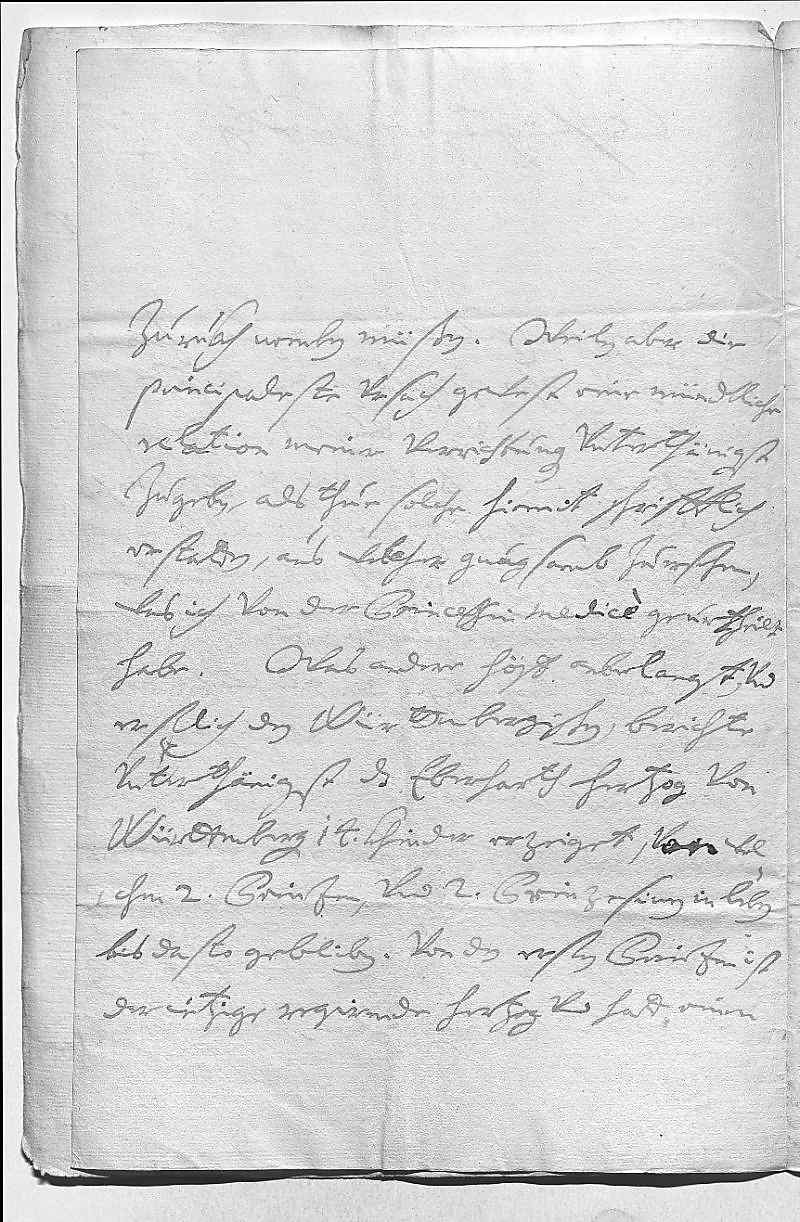 Zuruckh werden müssen. Weilen aber die
principaleste Ursach gewest eine mündtliche
relation meiner Verrichtung Unterthänigst
Zugeben, als thue solche hiemit schrifftlich
erstatten, aus welcher gnugsamb Zuersehen,
was ich von der Princessin Medicè geurtheilt
habe. Was andere höff anbelangt, Und
erstlich den Würtembergischen, berichte
Unterthänigst das Eberharth Hertzog Von
Würtemberg 14. Khinder erzeiget, Von wel
chen 2. Printzen, Und 2. Prinzesinen in leben
bis dasto gebliben. Von den ersten Printzen ist
der ietzige regirende Hertzog Und hatt einen